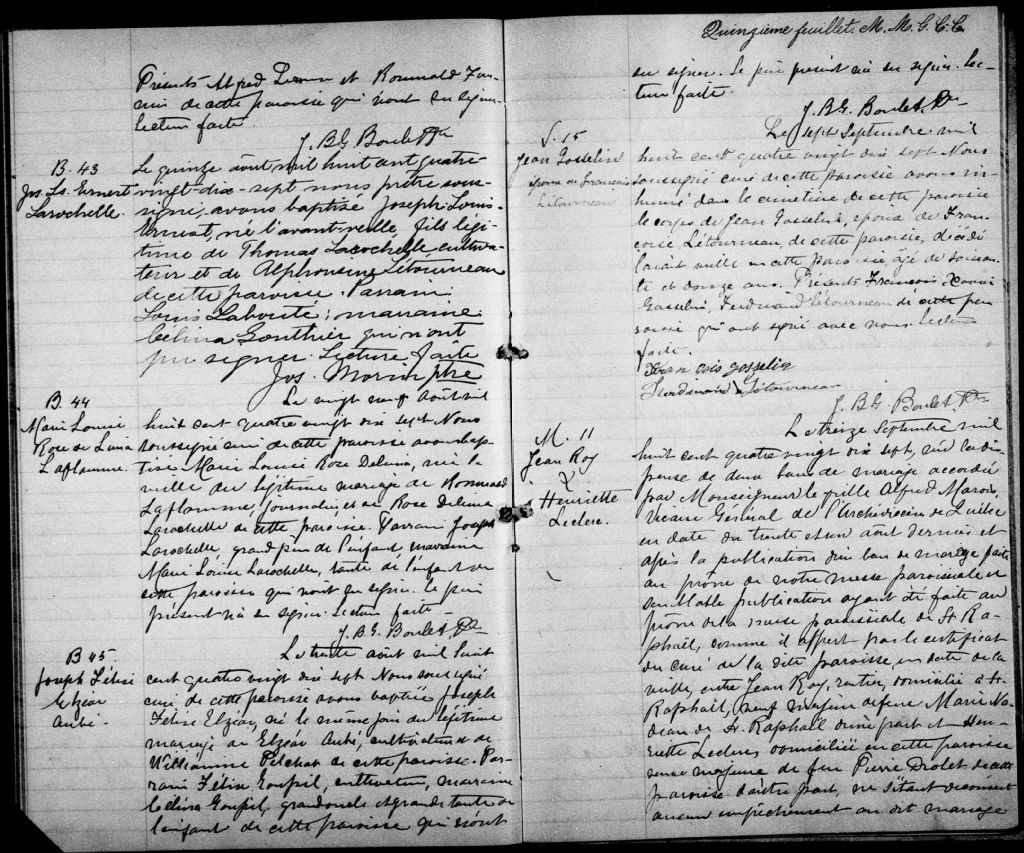 Présents Alfred et Romuald
de cette paroisse qui n'ont su signer
Lecture faite
J. BG Boulet Ptr
B. 43
Jos. Ls. Ernest
Larochelle.
Le quinze août mil huit cent quatre-
vingt-dix-sept nous prêtre sous-
signé, avons baptisé Joseph Louis
Ernest, né l'avant-veille, fils légi-
time de Thomas Larochelle, cultiva-
teur et de Alphonsine Létourneau
de cette paroisse. Parrain:
Louis Labonté; marraine
Célina Gonthier qui n'ont
pu signer. Lecture faite
Jos. Morin ptre
B. 44
Marie Louise
Rose de Lima
Laflamme.
Le vingt neuf Août mil
huit cent quatre vingt dix sept Nous
soussigné curé de cette paroisse avons bap-
tisé Marie Louise Rose Delima, née la
veille du légitime mariage de Romuald
Laflamme, journalier et de Rose Delima
Larochelle de cette paroisse. Parrain Joseph
Larochelle, grand père de l'enfant, marraine
Marie Louise Larochelle, tante de l'enfant de
cette paroisse qui n'ont su signer. Le père
présent n'a su signer. Lecture faite-
J. B.G. Boulet Ptr
B 45.
Joseph Félise
Elzéar
Aubé.
Le trente août mil huit
cent quatre vingt dix sept Nous soussigné
curé de cette paroisse avons baptisé Joseph
Félise Elzéar, né le même jour du légitime
mariage de Elzéar Aubé, cultivateur et de
Wilhelmine Pelchat de cette paroisse. Par-
rain Félise Goupil, cultivateur, marraine
Célina Goupil, grand oncle et grande tante de
l'enfant de cette paroisse qui n'ont
Quinzième feuillet. M. M. G. C. C.
su signer. Le père présent n'a su signer. Lec-
ture faite.
J. B.G. Boulet, Ptr
S. 15
Jean Gosselin
époux de Françoise
Létourneau
Le sept Septembre mil
huit cent quatre vingt dix sept Nous
soussigné curé de cette paroisse avons in-
humé dans le cimetière de cette paroisse
le corps de Jean Gosselin, époux de Fran-
çoise Létourneau, de cette paroisse, décédé
l'avant veille en cette paroisse âgé de soixan-
te et douze ans. Présents François Xavier
Gosselin, Ferdinand Létourneau de cette pa-
roisse qui ont signé avec nous. Lecture
faite.
François gosselin
Ferdinand Létourneau
J. B.G. Boulet, Ptr
M. 11
Jean Roy
&
Henriette
Leclerc.
Le treize Septembre mil
huit cent quatre vingt dix sept, vu la dis-
pense de deux bans de mariage accordée
par Monseigneur Cyrille Alfred Marois,
Vicaire Général de l'Archidiocèse de Québec
en date du trente et un août dernier et
après la publication d'un ban de mariage faite
au prône de notre messe paroissiale et
semblable publication ayant été faite au
prône de la messe paroissiale de St Ra-
phaël, comme il appert par le certificat
du curé de la dite paroisse, en date de la
veille, entre Jean Roy, rentier, domicilié à St
Raphaël, veuf majeur de feue Marie
de St. Raphaël d'une part et Hen-
riette Leclerc domiciliée en cette paroisse
veuve majeure de feu Pierre Drolet de cette
paroisse d'autre part, ne s'étant découvert
aucun empêchement au dit mariage